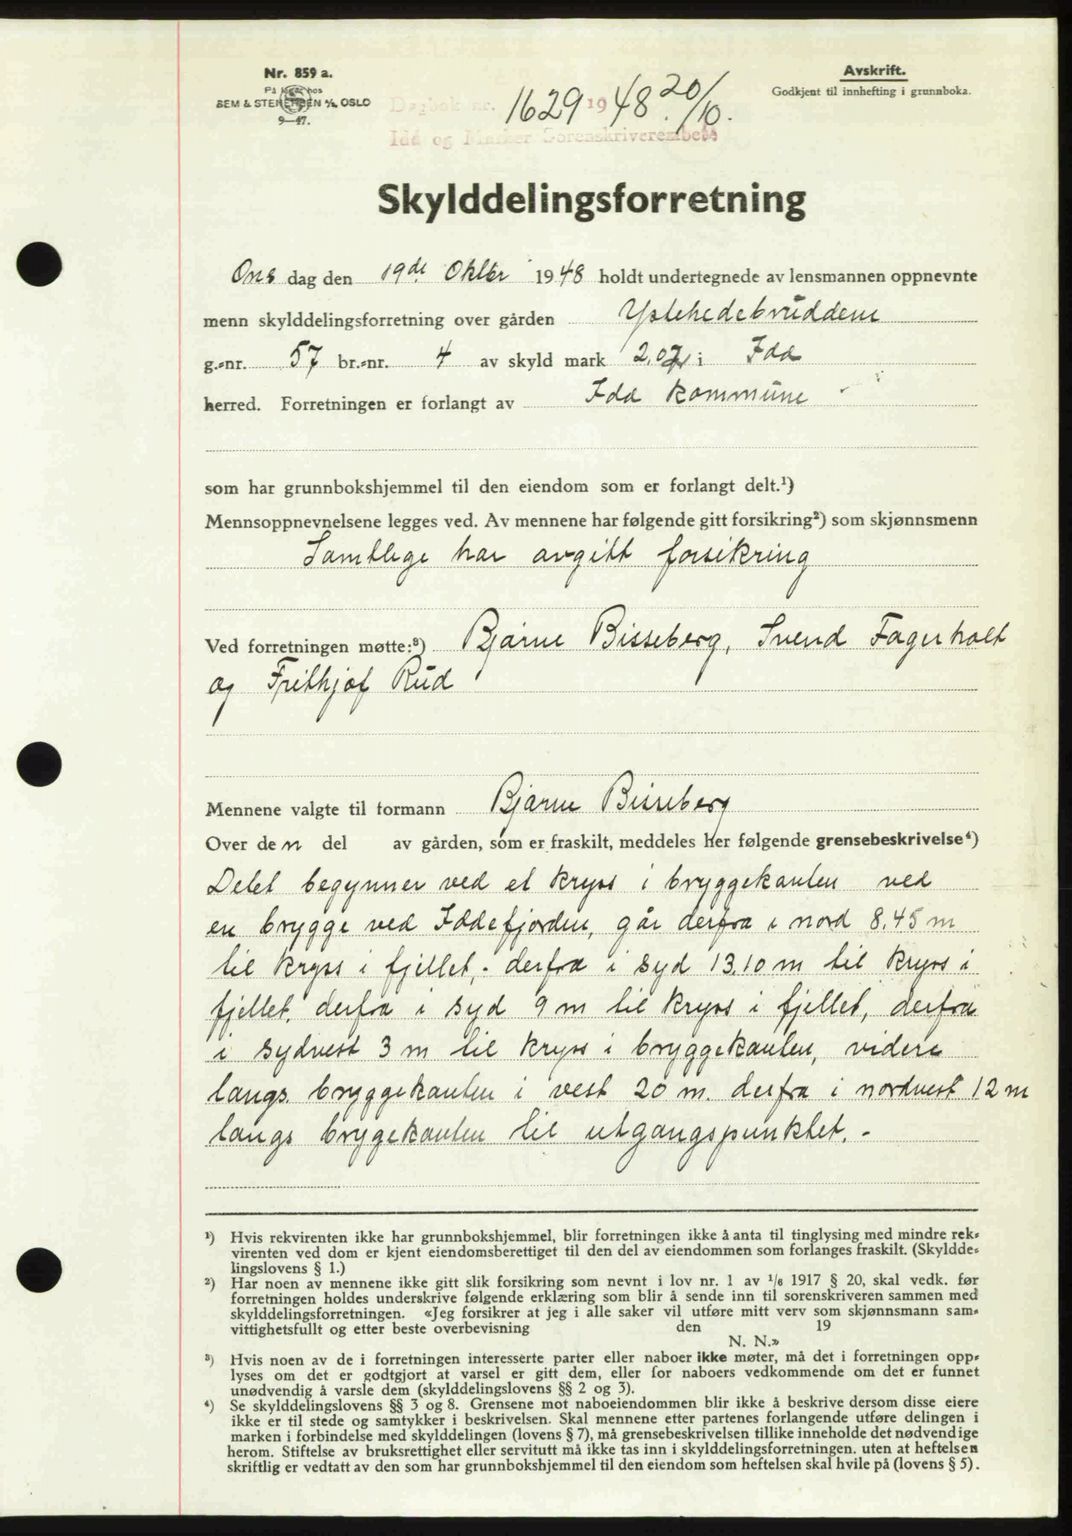 Nr. 859 a.
På lager hos
SEM & STENERSEN A/S, OSLO
9—47.
Avskrift.
Godkjent til innhefting i grunnboka.
Dagbok nr. 1629 1948. 20/10.
Idd og Marker Sorenskriverembete
Skylddelingsforretning
Ons dag den 19de. Oktbr 1948 holdt undertegnede av lensmannen oppnevnte
menn skylddelingsforretning over gården Ystehedebruddene
g.-nr. 57 br.-nr. 4 av skyld mark 2.07 i Idd
herred. Forretningen er forlangt av Idd kommune
som har grunnbokshjemmel til den eiendom som er forlangt delt.¹)
Mennsoppnevnelsene legges ved. Av mennene har følgende gitt forsikring²) som skjønnsmenn
Samtlige har avgitt forsikring
Ved forretningen møtte:³) Bjarne Bisseberg, Svend Fagerholt
og Frithjof Rud
Mennene valgte til formann Bjarne Bisseberg
Over den del av gården, som er fraskilt, meddeles her følgende grensebeskrivelse⁴)
Delet begynner ved et kryss i bryggekanten ved
en brygge ved Iddefjorden, går derfra i nord 8.45 m
til kryss i fjellet, derfra i syd 13.10 m til kryss i
fjellet, derfra i syd 9 m til kryss i fjellet, derfra
i sydvest 3 m til kryss i bryggekanten, videre
langs bryggekanten i vest 20 m. derfra i nordvest 12 m
langs brygekanten til utgangspunktet. -
¹) Hvis rekvirenten ikke har grunnbokshjemmel, blir forretningen ikke å anta til tinglysing med mindre rek-
virenten ved dom er kjent eiendomsberettiget til den del av eiendommen som forlanges fraskilt. (Skyldde-
lingslovens § 1.)
²) Har noen av mennene ikke gitt slik forsikring som nevnt i lov nr. 1 av 1/6 1917 § 20, skal vedk. før
forretningen holdes underskrive følgende erklæring som blir å sende inn til sorenskriveren sammen med
skylddelingsforretningen. «Jeg forsikrer at jeg i alle saker vil utføre mitt verv som skjønnsmann sam-
vittighetsfullt og etter beste overbevisning den 19
N. N.»
³) Hvis noen av de i forretningen interesserte parter eller naboer ikke møter, må det i forretningen opp-
lyses om det er godtgjort at varsel er gitt dem, eller for naboers vedkommende om det er funnet
unødvendig å varsle dem (skylddelingslovens §§ 2 og 3).
⁴) Se skylddelingslovens §§ 3 og 8. Grensene mot naboeiendommen blir ikke å beskrive dersom disse eiere
ikke er til stede og samtykker i beskrivelsen. Skal mennene etter partenes forlangende utføre delingen i
marken i forbindelse med skylddelingen (lovens § 7), må grensebeskrivelsen tillike inneholde det nødvendige
herom. Stiftelse av bruksrettighet eller servitutt må ikke tas inn i skylddelingsforretningen. uten at heftelsen
skriftlig er vedtatt av den som har grunnbokshjemmel til den eiendom som heftelsen skal hvile på (lovens § 5).